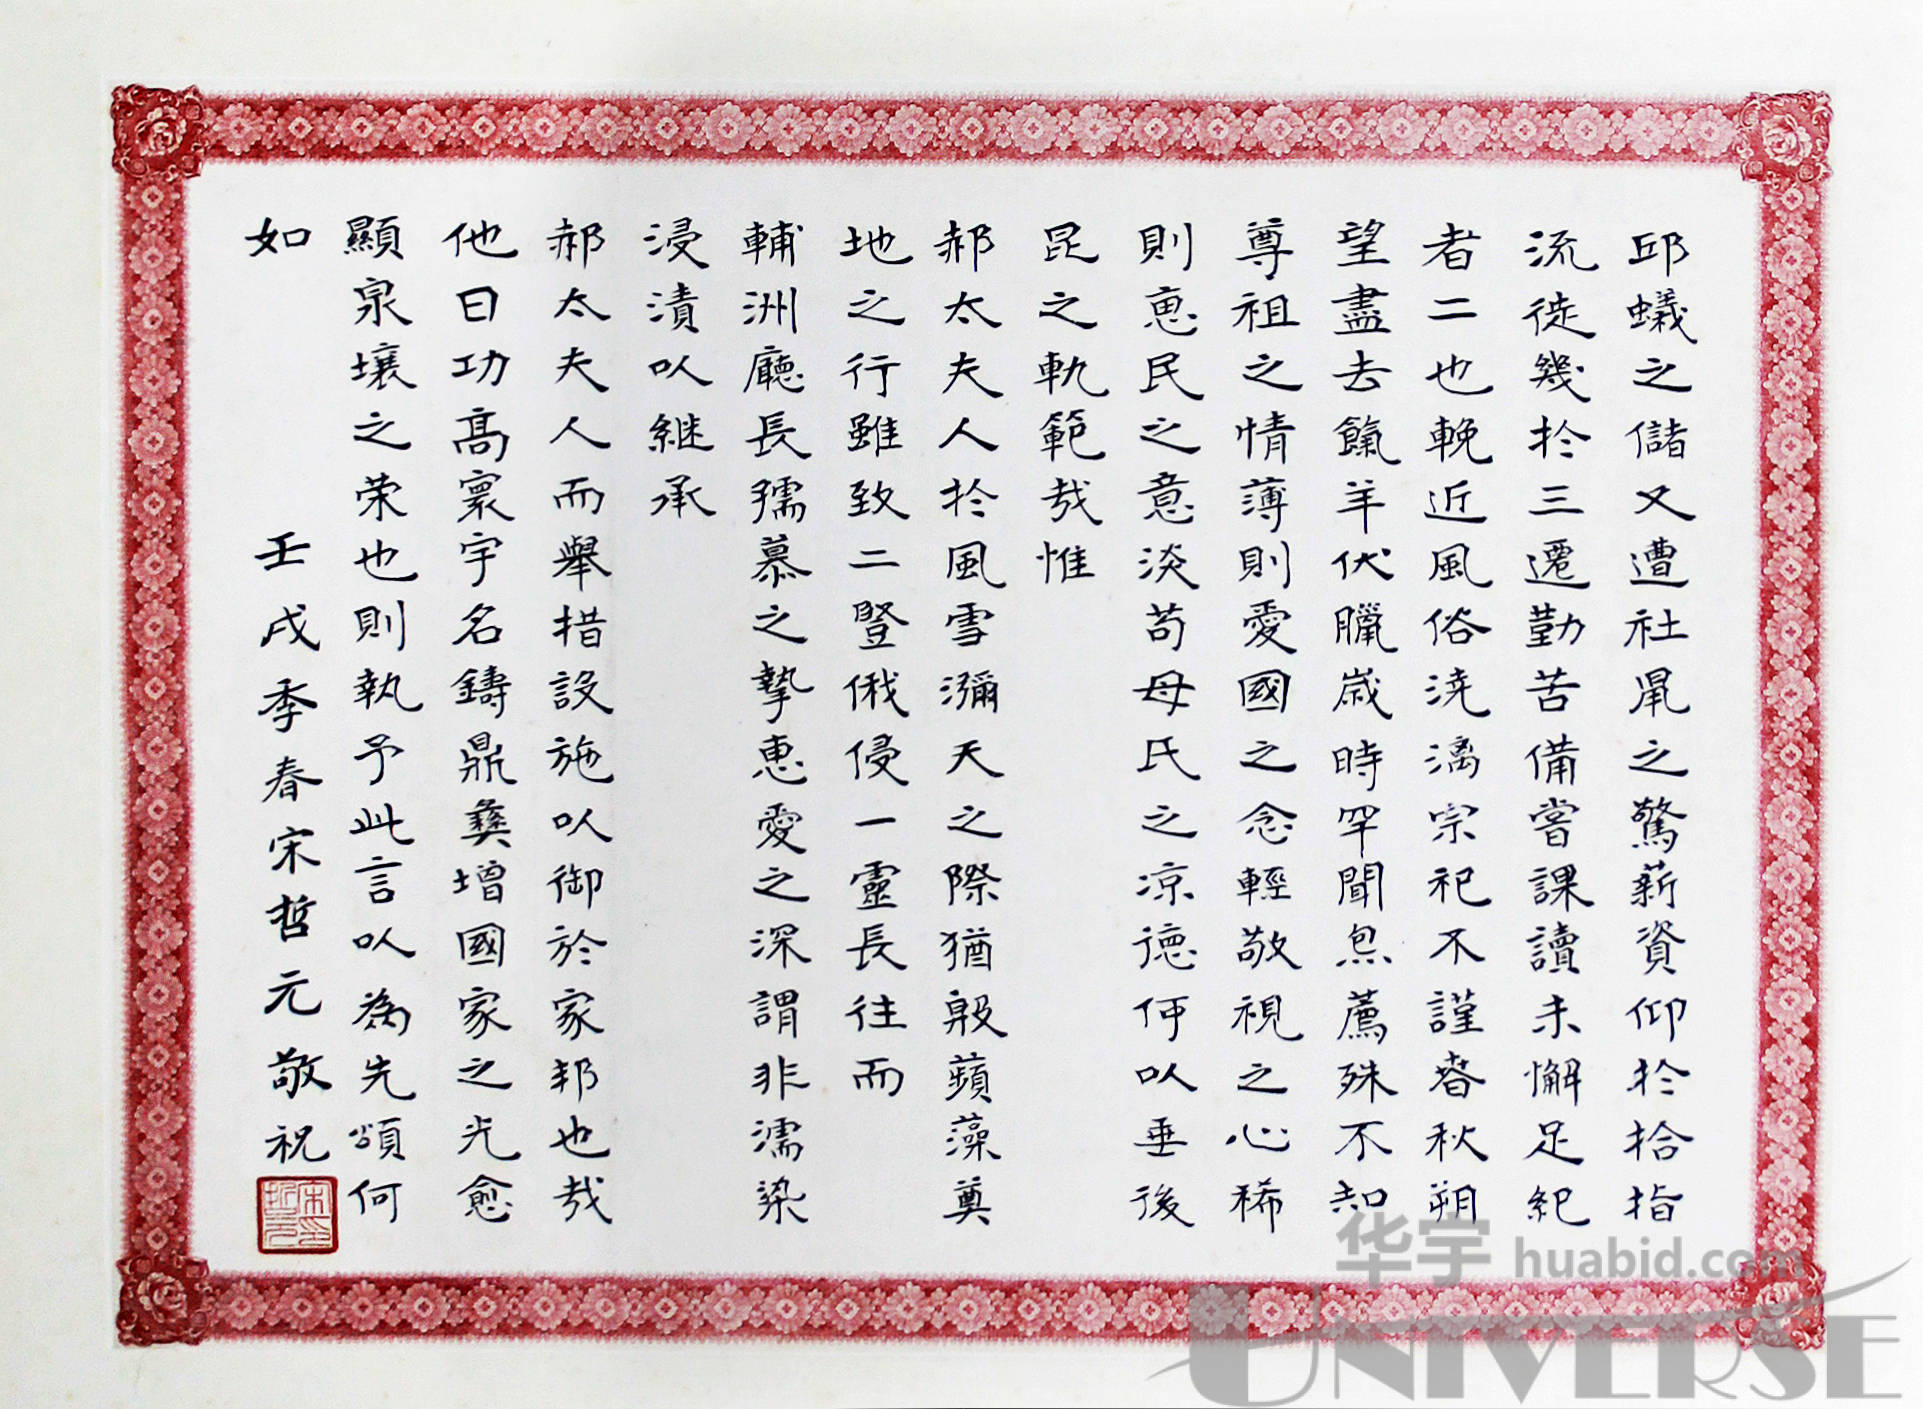 邱蟻之儲又遭社鼠之驚薪資仰於拾指
流徙幾於三遷勤苦備嘗課讀未懈足紀
者二也輓近風俗澆漓宗祀不謹春秋朔
望盡去餼羊伏臘歲時罕聞焄薦殊不知
尊祖之情薄則愛國之念輕敬視之心稀
則惠民之意淡苟母氏之凉德何以垂後
昆之軌範哉惟
郝太夫人於風雪瀰天之際猶殷蘋藻奠
地之行雖致二豎俄侵一靈長往而
輔洲廳長孺慕之摯惠愛之深謂非濡染
浸漬以継承
郝太夫人而舉措設施以御於家邦也哉
他日功高寰宇名鑄鼎彝增國家之光愈
顯泉壤之荣也則執予此言以為先頌何
如
壬戌季春宋哲元敬祝
宋哲元印
华宇 huabid.com
UNIVERSE